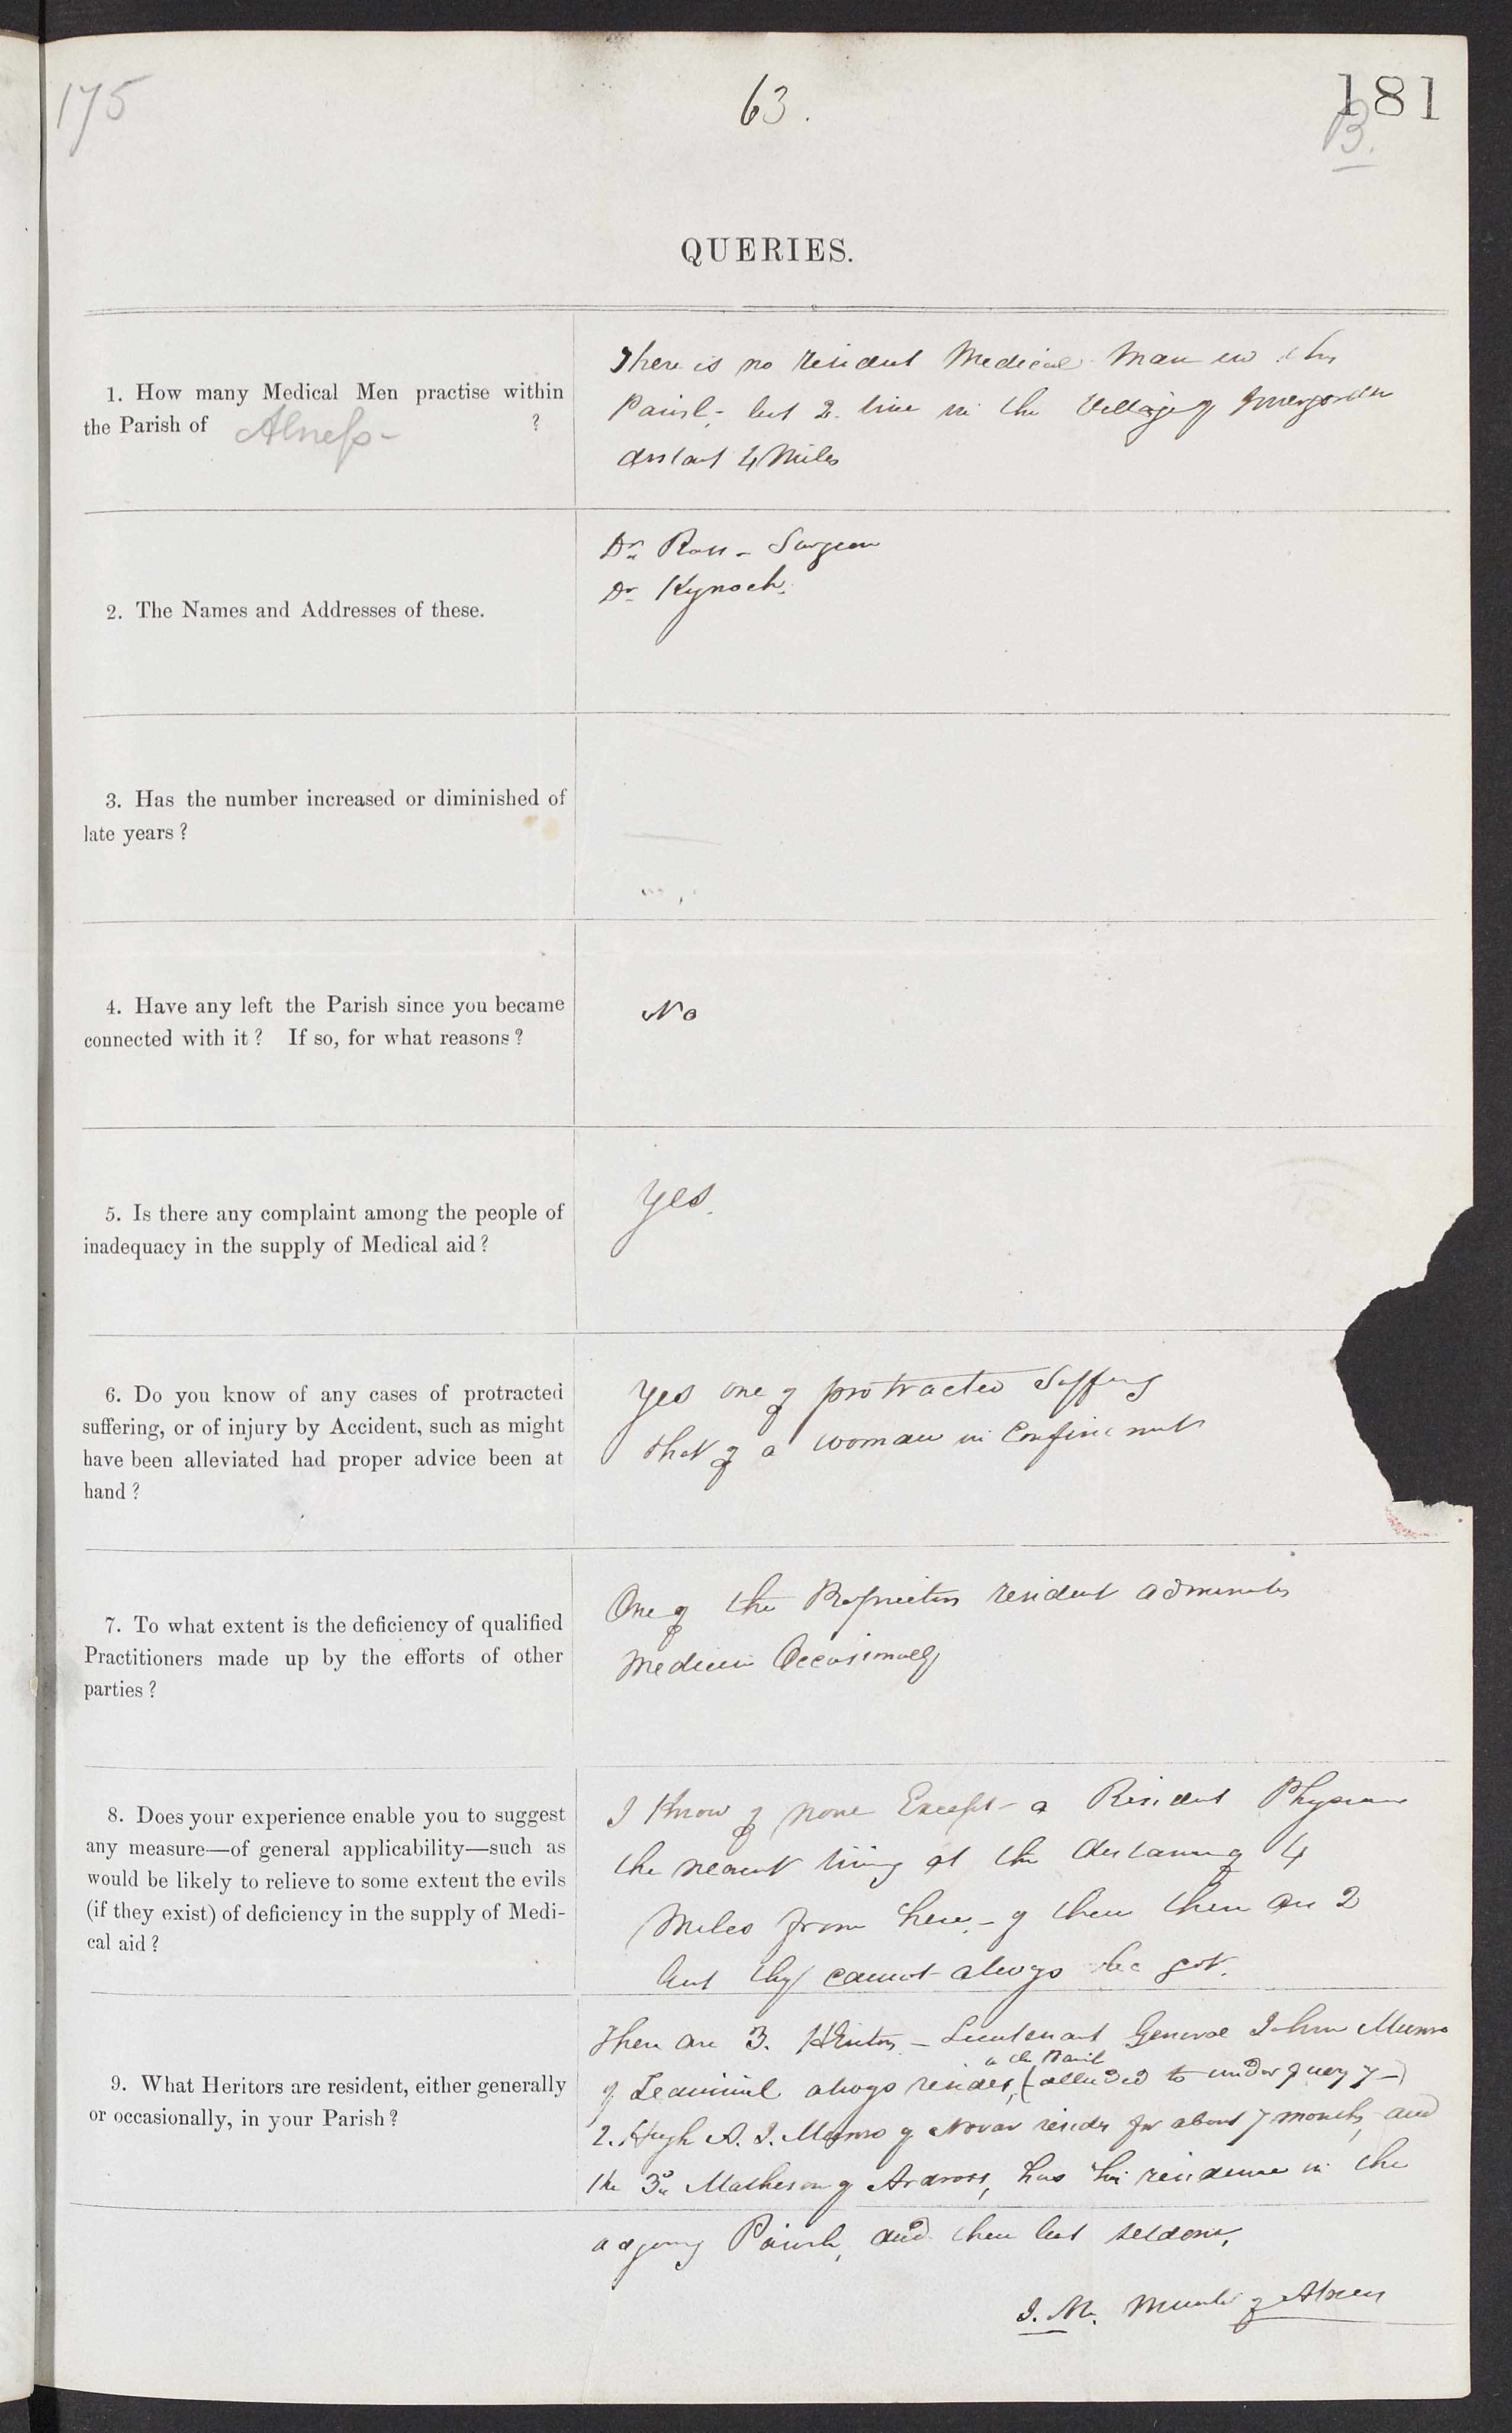 175
63.
181
B.
QUERIES.
1. How many Medical Men practise within
the Parish of Alness- ?
There is no resident Medical Man in this
Parish, but 2 live in the Village of Invergordon
distant 4 Miles
2. The Names and Addresses of these.
Dr Ross - Surgeon
Dr Kynoch.
3. Has the number increased or diminished of
late years?
4. Have any left the Parish since you became
connected with it? If so, for what reasons?
No
5. Is there any complaint among the people of
inadequacy in the supply of Medical aid?
Yes.
6. Do you know of any cases of protracted
suffering, or of injury by Accident, such as might
have been alleviated had proper advice been at
hand?
Yes one of protracted Suffering
that of a woman in Confinement
7. To what extent is the deficiency of qualified
Practitioners made up by the efforts of other
parties?
One of the Proprietors resident administers
Medicine Occasionally
8. Does your experience enable you to suggest
any measure—of general applicability—such as
would be likely to relieve to some extent the evils
(if they exist) of deficiency in the supply of Medi-
cal aid?
I Know of none Except a Resident Physician
the nearest living at the distance of 4
Miles from here - of these there are 2
but they cannot always be got.
9. What Heritors are resident, either generally
or occasionally, in your Parish?
There are 3. Heritors - Lieutenant General John Munro
of Teaninich always resides, in the Parish (alluded to under query 7-)
2. Hugh A. J. Munro of Novar resides for about 7 months, and
the 3d Matheson of Ardross, has his residence in the
adjoining Parish, and there but seldom.
J. M. of Alness